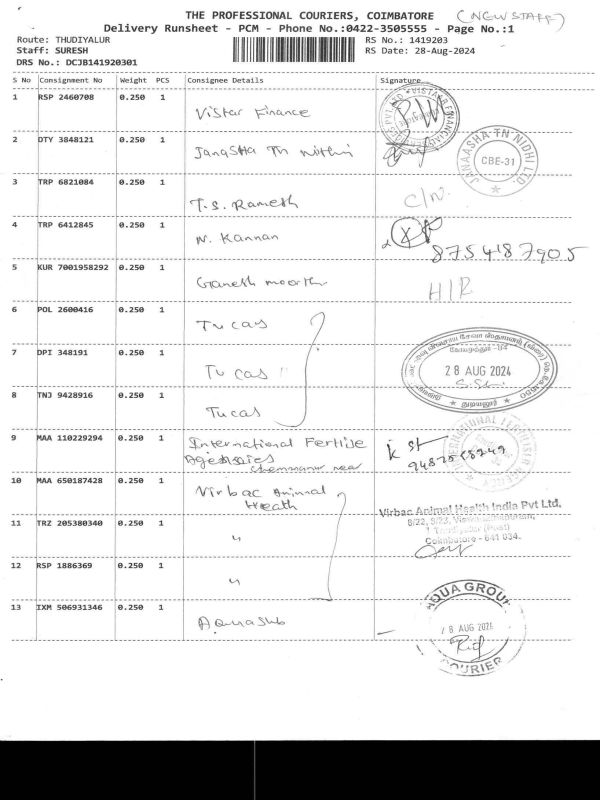 THE PROFESSIONAL COURIERS, COIMBATORE (NEW STAFF)
Delivery Runsheet - PCM - Phone No.:0422-3505555 - Page No.:1
Route: THUDIYALUR RS No.: 1419203
Staff: SURESH RS Date: 28-Aug-2024
DRS No.: DCJB141920301
S No Consignment No Weight PCS Consignee Details Signature
1 RSP 2460708 0.250 1 Vistar Finance
2 DTY 3848121 0.250 1 Jangsha Tn Nithi
JANAASHA TN NIDHI LTD.
CBE-31
3 TRP 6821084 0.250 1 T.S. Ramesh C/N.
4 TRP 6412845 0.250 1 N. Kannan
8754187905
5 KUR 7001958292 0.250 1 Ganesh moorthi H/R
6 POL 2600416 0.250 1 Tucas
7 DPI 348191 0.250 1 Tucas
28 AUG 2024
துடியலூர்
8 TNJ 9428916 0.250 1 Tucas
9 MAA 110229294 0.250 1 International Fertilse
Agensies
INTERNATIONAL FERTILISER AGENCY
10 MAA 650187428 0.250 1 Virbac Animal
Heath
Virbac Animal Health India Pvt Ltd.
Coimbatore - 641 034.
11 TRZ 205380340 0.250 1 "
12 RSP 1886369 0.250 1 "
13 IXM 506931346 0.250 1 Aquasub
AQUA GROUP
28 AUG 2024
COURIER